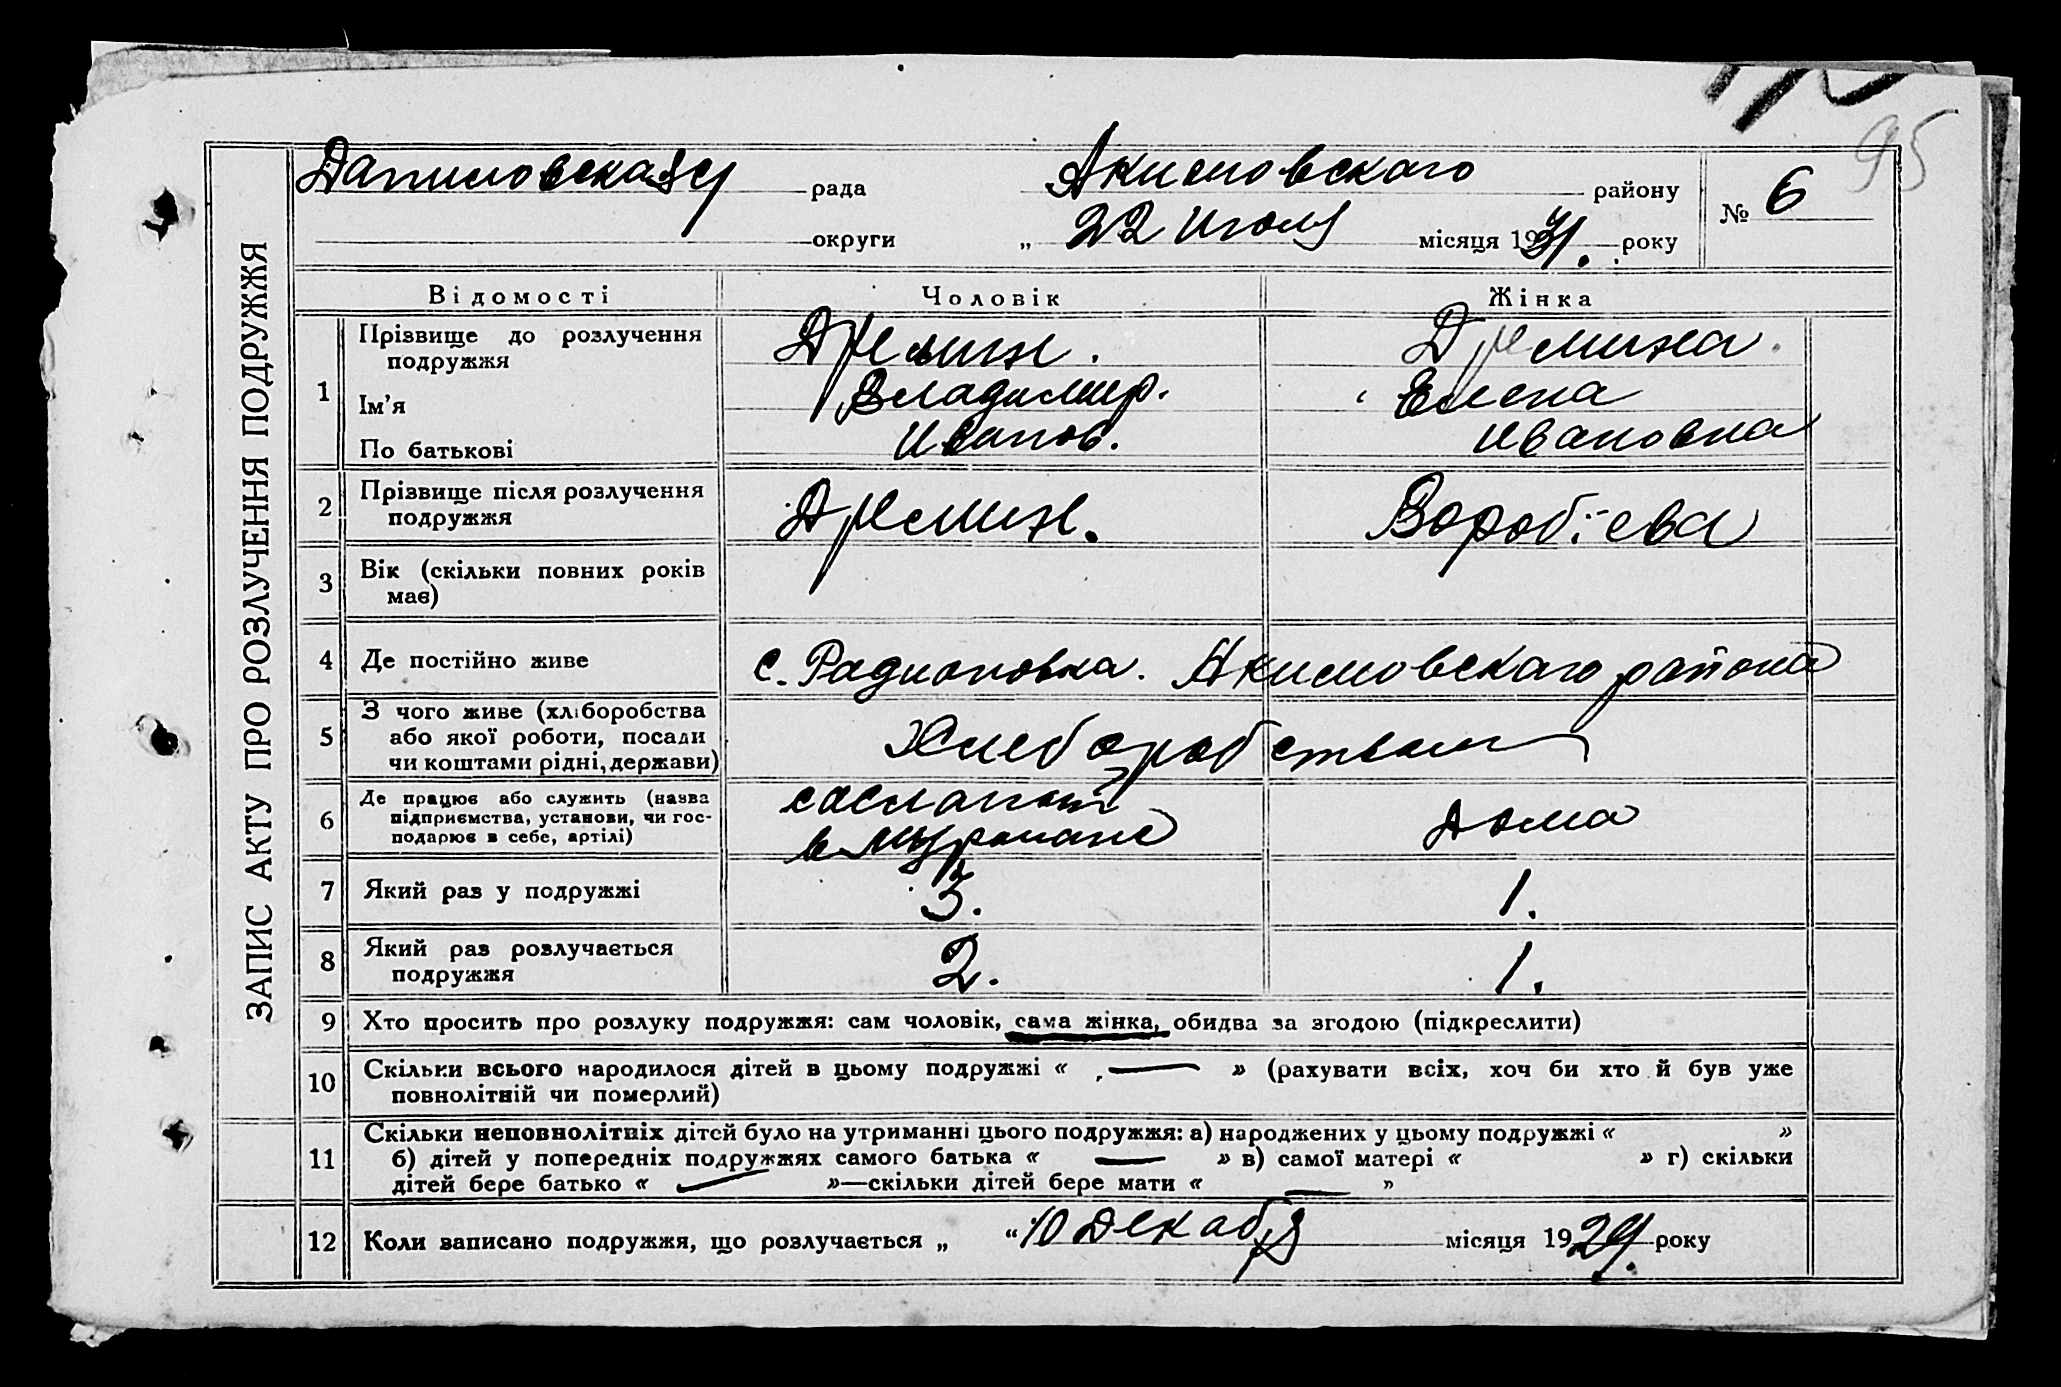 95
Даниловская с/ рада Акимовскаго району
№ 6
округи „ 22 Июля місяця 1931. року
ЗАПИС АКТУ ПРО РОЗЛУЧЕННЯ ПОДРУЖЖЯ
Відомості Чоловік Жінка
1 Прізвище до розлучення подружжя Дремин. Дремина.
Ім’я Владимир. Елена
По батькові Иванов. Ивановна
2 Прізвище після розлучення подружжя Дремин. Воробіева
3 Вік (скільки повних років має)
4 Де постійно живе с. Радионовка. Акимовскаго района
5 З чого живе (хліборобства
або якої роботи, посади
чи коштами рідні, держави)
Хлеборобством
6 Де працює або служить (назва
підприємства, установи, чи гос-
подарює в себе, артілі)
сослан
в Мурмане
Дома
7 Який раз у подружжі 3. 1.
8 Який раз розлучається подружжя 2. 1.
9 Хто просить про розлуку подружжя: сам чоловік, сама жінка, обидва за згодою (підкреслити)
10 Скільки всього народилося дітей в цьому подружжі « — » (рахувати всіх, хоч би хто й був уже
повнолітній чи померлий)
11 Скільки неповнолітніх дітей було на утриманні цього подружжя: а) народжених у цьому подружжі « »
б) дітей у попередніх подружжях самого батька « — » в) самої матері « » г) скільки
дітей бере батько « — »—скільки дітей бере мати « — »
12 Коли записано подружжя, що розлучається „ “ 10 Декабря місяця 1929. року